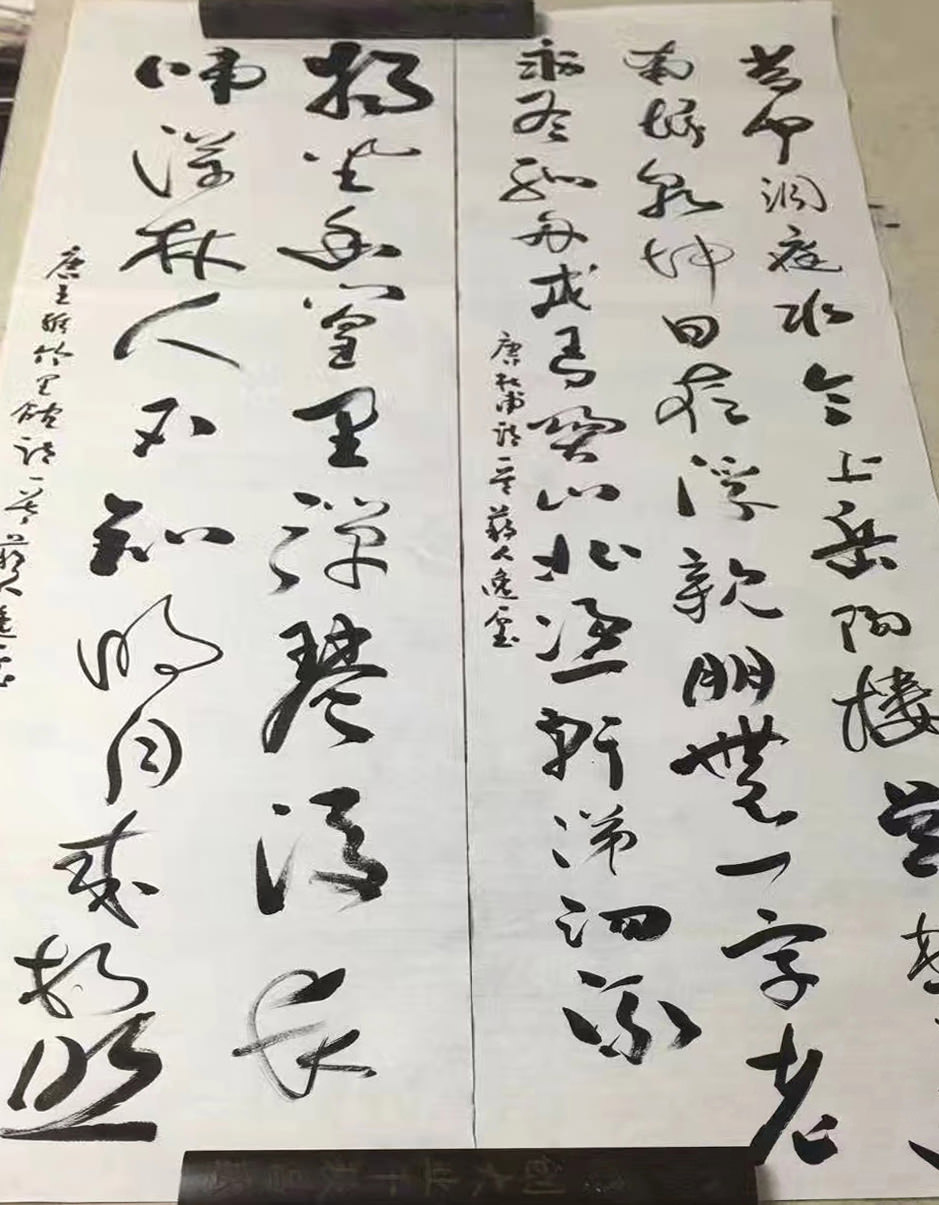 昔闻洞庭水今上岳陽樓吴楚
南坼乾坤日夜浮親朋無一字老
病有孤舟戎馬關山北憑軒涕泗流
唐杜甫詩一首人逸
獨坐幽篁里彈琴復長
嘯深林人不知明月來相照
唐王維竹里館詩一首人逸